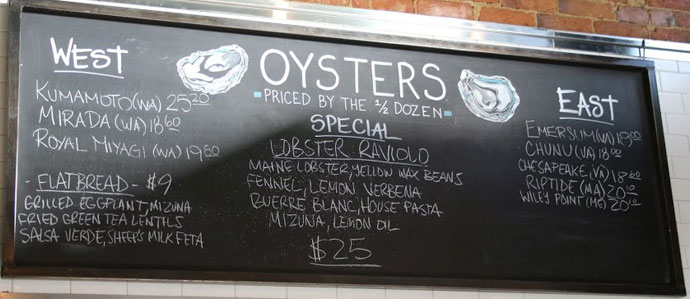 WEST
KUMAMOTO (WA) 25
MIRADA (WA) 18.60
ROYAL MIYAGI (WA) 19
- FLATBREAD - $9
GRILLED EGGPLANT, MIZUNA
FRIED GREEN TEA LENTILS
SALSA VERDE, SHEEP'S MILK FETA
OYSTERS
- PRICED BY THE 1/2 DOZEN -
SPECIAL
LOBSTER RAVIOLO
MAINE LOBSTER, YELLOW WAX BEANS
FENNEL, LEMON VERBENA
BUERRE BLANC, HOUSE PASTA
MIZUNA, LEMON OIL
$25
EAST
EMERSUM (VA)
CHUNU (VA) 18
CHESAPEAKE, (VA) 18
RIPTIDE (MA) 20
WILEY POINT 20